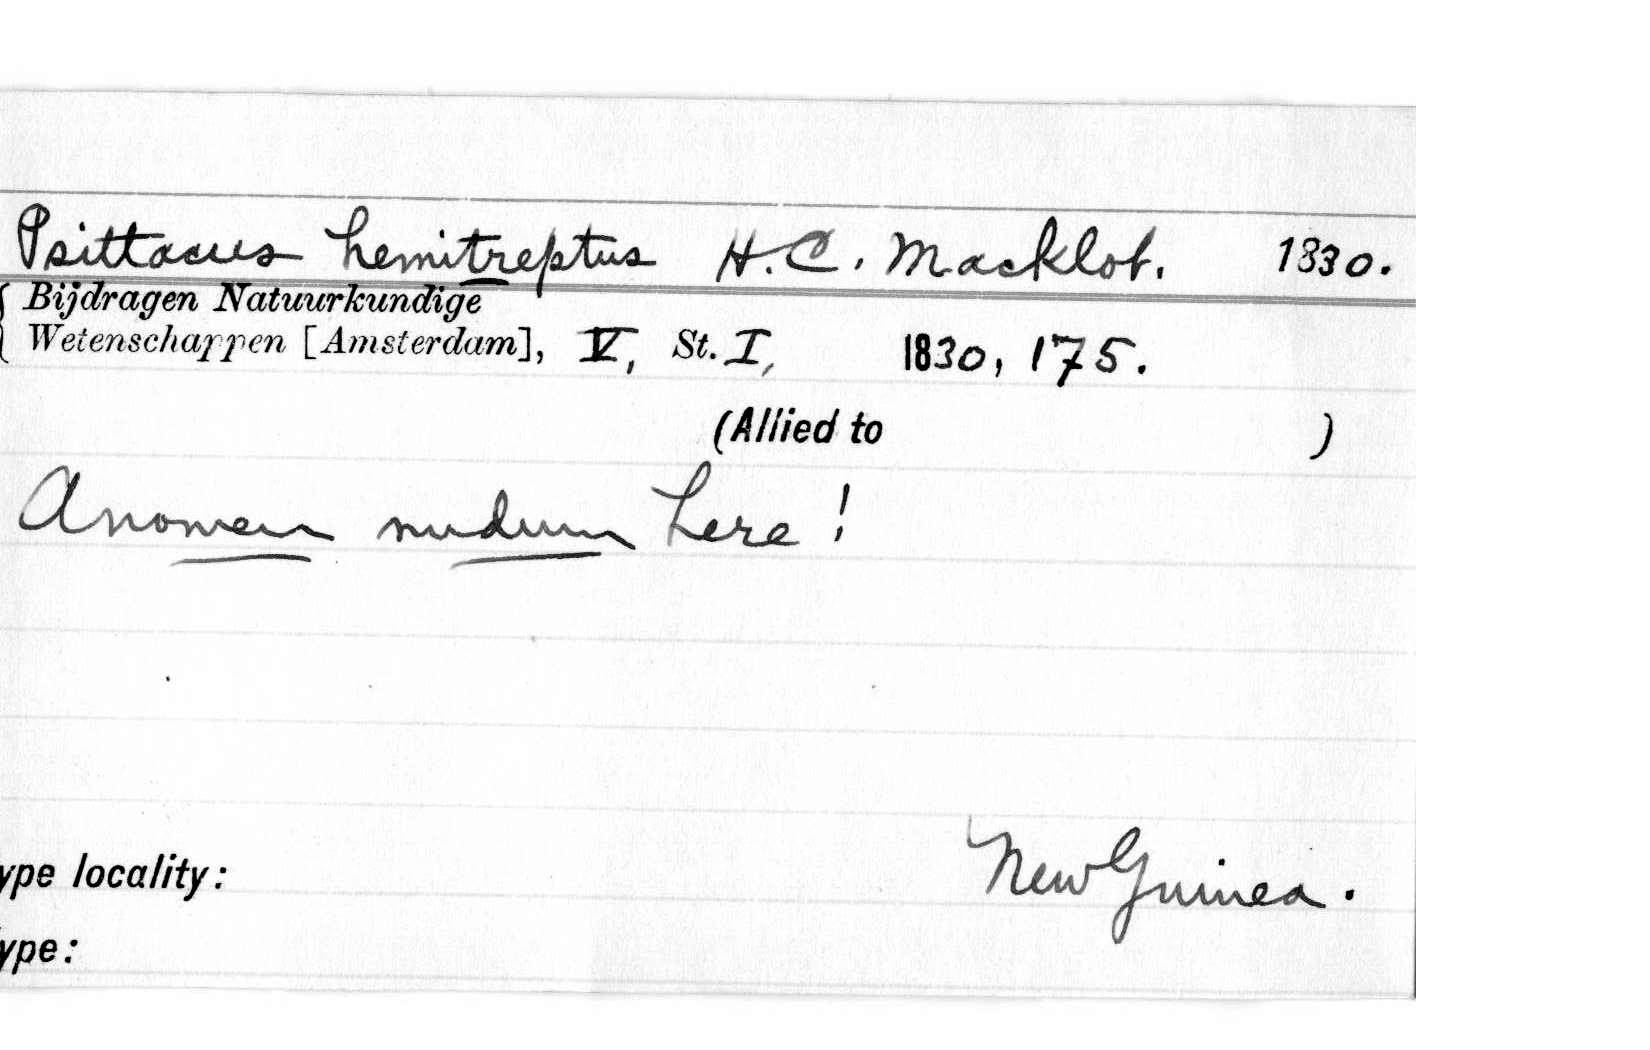 Psittacus hemitreptus H.C. Macklot. 1830.
Bijdragen Natuurkundige
Wetenschappen [Amsterdam], V, St. I, 1830, 175.
(Allied to )
A nomen nudum here!
ype locality: New Guinea.
ype: